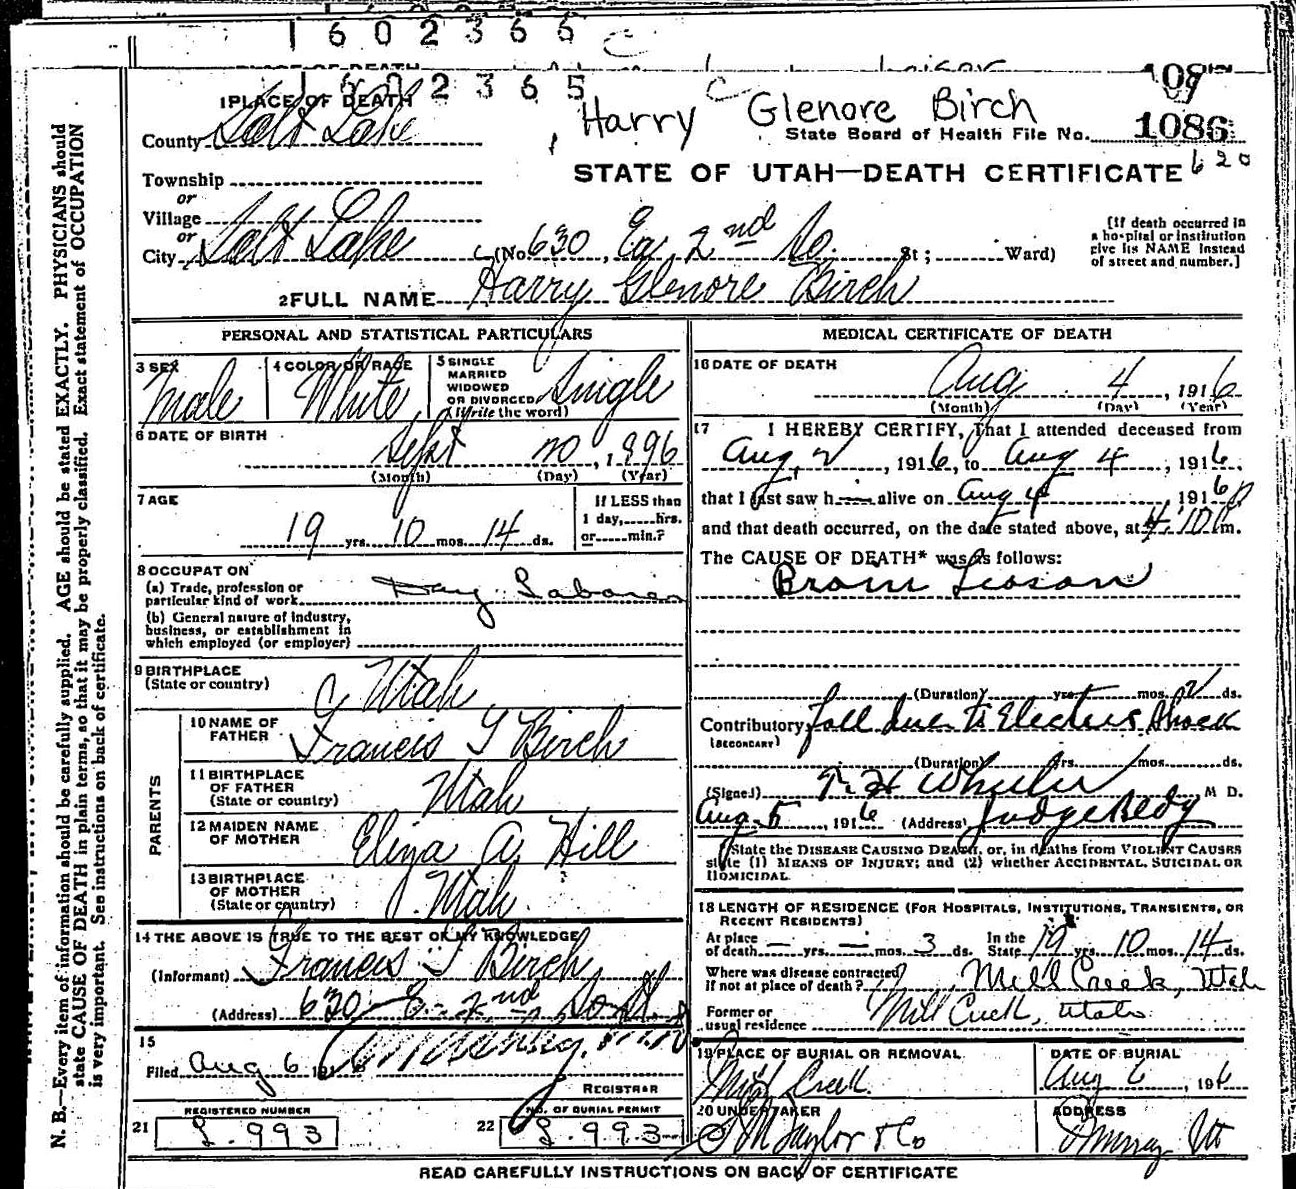 1 6 0 2 3 6 6
1 6 0 2 3 6 5
Harry Glenore Birch
State Board of Health File No. 1086
620
STATE OF UTAH—DEATH CERTIFICATE
1 PLACE OF DEATH
County Salt Lake
Township
or
Village
or
City Salt Lake (No. 630, Ea. 2nd So. St; Ward)
[If death occurred in a hospital or institution give its NAME instead of street and number.]
2 FULL NAME Harry Glenore Birch
PERSONAL AND STATISTICAL PARTICULARS
3 SEX Male
4 COLOR OR RACE White
5 SINGLE MARRIED WIDOWED OR DIVORCED (Write the word) Single
6 DATE OF BIRTH
Sept 20, 1896
(Month) (Day) (Year)
7 AGE
19 yrs. 10 mos. 14 ds.
If LESS than
1 day, hrs.
or min.?
8 OCCUPATION
(a) Trade, profession or
particular kind of work Day Laborer
(b) General nature of industry,
business, or establishment in
which employed (or employer)
9 BIRTHPLACE
(State or country) Utah
PARENTS
10 NAME OF
FATHER Francis T Birch
11 BIRTHPLACE
OF FATHER
(State or country) Utah
12 MAIDEN NAME
OF MOTHER Eliza A. Hill
13 BIRTHPLACE
OF MOTHER
(State or country) Utah
14 THE ABOVE IS TRUE TO THE BEST OF MY KNOWLEDGE
(Informant) Francis T Birch
(Address) 630 E. 2nd South
15
Filed Aug 6 1916
REGISTRAR
REGISTERED NUMBER
21 993
NO. OF BURIAL PERMIT
22 993
MEDICAL CERTIFICATE OF DEATH
16 DATE OF DEATH
Aug 4, 1916
(Month) (Day) (Year)
17 I HEREBY CERTIFY, That I attended deceased from
Aug, 2, 1916, to Aug 4, 1916,
that I last saw h— alive on Aug 4, 1916
and that death occurred, on the date stated above, at 4:10 P m.
The CAUSE OF DEATH* was as follows:
(Duration) yrs. mos. 2 ds.
Contributory fall due to Electric Shock
(SECONDARY)
(Duration) yrs. mos. ds.
(Signed) T. H. Wheeler M D.
Aug. 5, 1916 (Address) Judge Bldg
State the DISEASE CAUSING DEATH, or, in deaths from VIOLENT CAUSES
state (1) MEANS OF INJURY; and (2) whether ACCIDENTAL, SUICIDAL OR
HOMICIDAL.
18 LENGTH OF RESIDENCE (FOR HOSPITALS, INSTITUTIONS, TRANSIENTS, OR
RECENT RESIDENTS)
At place of death — yrs. — mos. 3 ds. In the State 19 yrs. 10 mos. 14 ds.
Where was disease contracted
if not at place of death? Mill Creek, Utah
Former or
usual residence Mill Creek, Utah
19 PLACE OF BURIAL OR REMOVAL
Mill Creek
DATE OF BURIAL
Aug 6, 1916
20 UNDERTAKER
M Taylor & Co
ADDRESS
Murray Ut
READ CAREFULLY INSTRUCTIONS ON BACK OF CERTIFICATE
N. B.—Every item of information should be carefully supplied. AGE should be stated EXACTLY. PHYSICIANS should
state CAUSE OF DEATH in plain terms, so that it may be properly classified. Exact statement of OCCUPATION
is very important. See instructions on back of certificate.